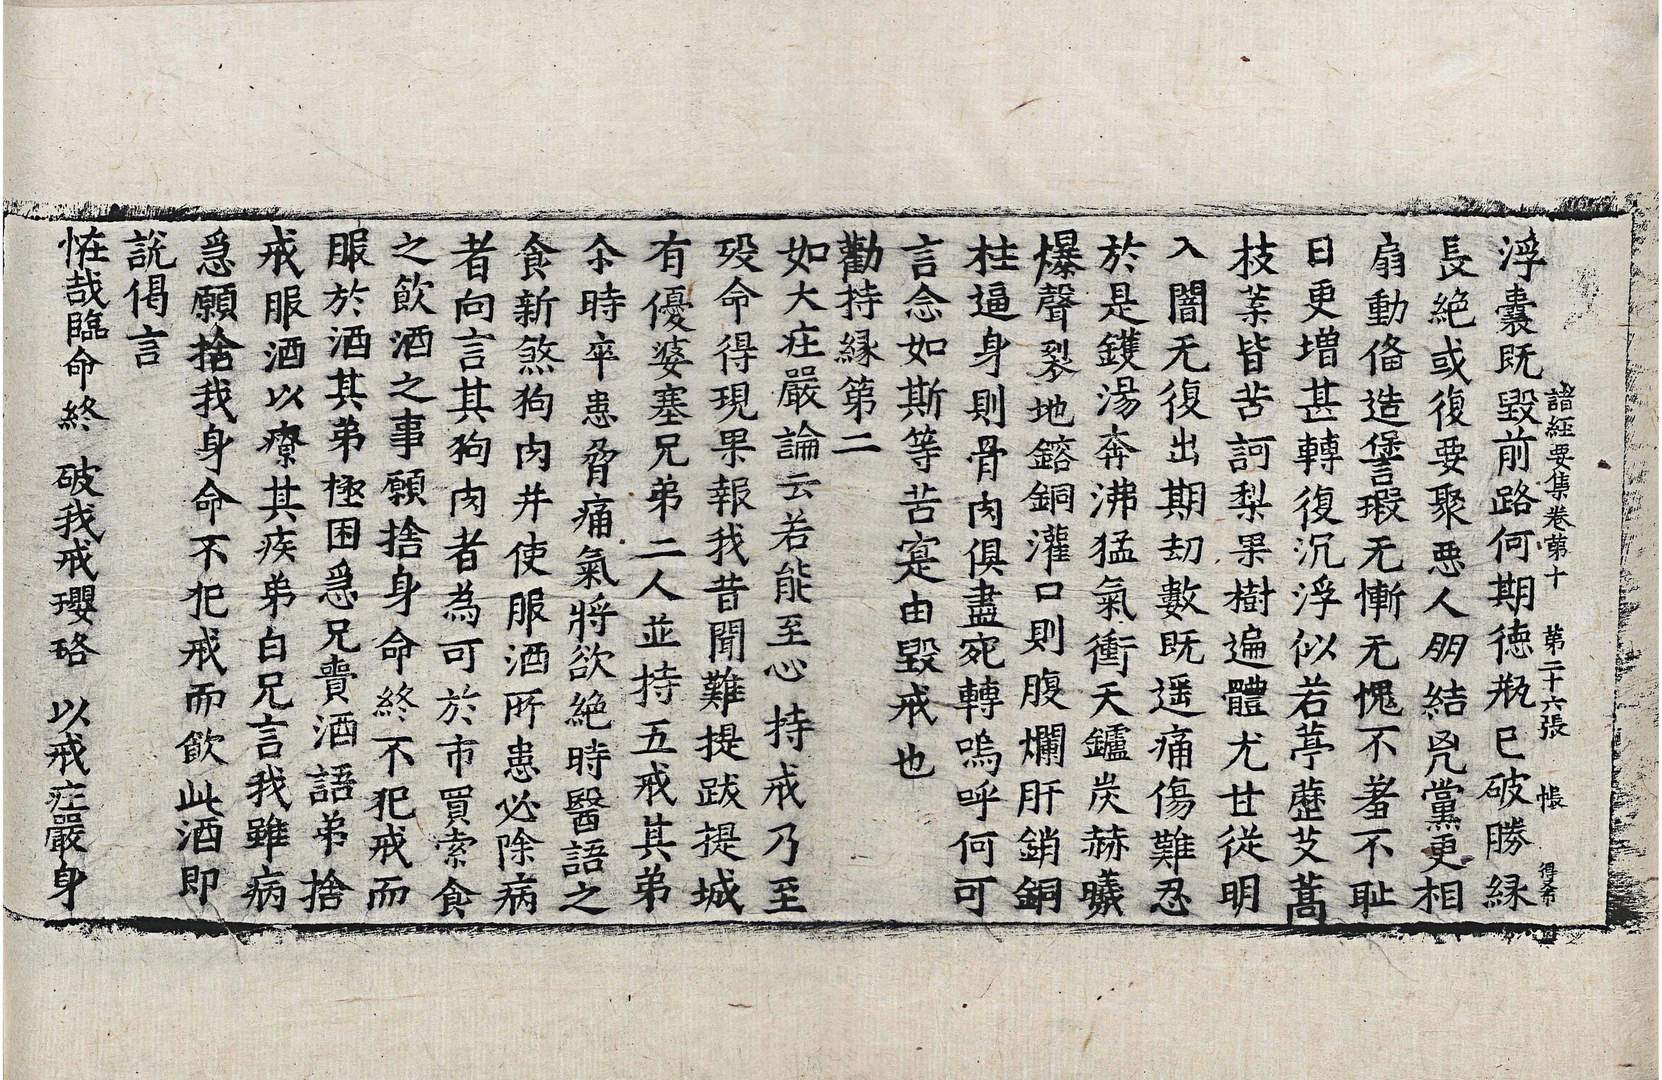 諸經要集卷第十 第二十六張 帳 得希
浮囊既毀前路何期德瓶已破勝緣
長絕或復要聚惡人朋結兇黨更相
扇動俻造諐瑕无慚无愧不羞不耻
日更增甚轉復沉浮似若葶藶艾蒿
枝葉皆苦訶梨果樹遍體尤甘從明
入闇无復出期劫數既遥痛傷難忍
於是鑊湯奔沸猛氣衝天鑪炭赫曦
爆聲裂地鎔銅灌口則腹爛肝銷銅
柱逼身則骨肉俱盡宛轉嗚呼何可
言念如斯等苦寔由毀戒也
勸持緣第二
如大庄嚴論云若能至心持戒乃至
歿命得現果報我昔聞難提跋提城
有優婆塞兄弟二人並持五戒其弟
尒時卒患脅痛氣將欲絕時醫語之
食新煞狗肉并使服酒所患必除病
者向言其狗肉者為可於市買索食
之飲酒之事願捨身命終不犯戒而
服於酒其弟極困爲兄賷酒語弟捨
戒服酒以療其疾弟白兄言我雖病
爲願捨我身命不犯戒而飲此酒即
說偈言
恠哉臨命終 破我戒瓔珞 以戒庄嚴身